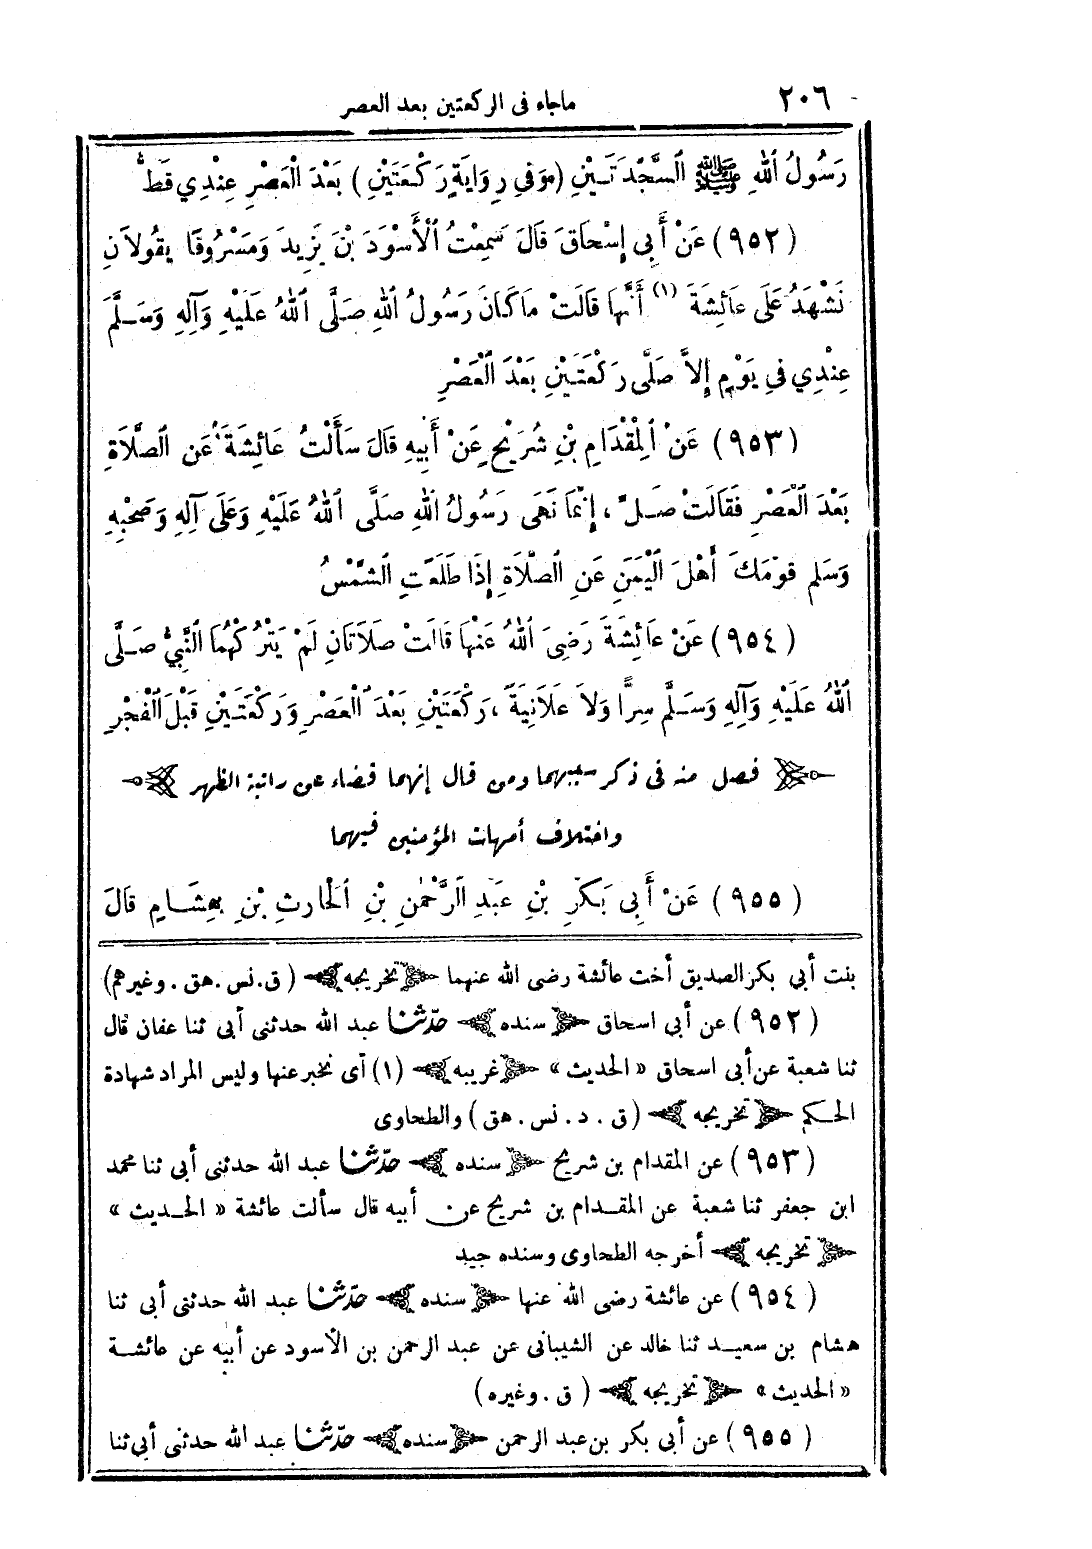 ٢٠٦ ماجاء فى الركعتين بعد العصر
رَسُولُ ٱللهِ ﷺ ٱلسَّجْدَتَيْنِ (وَفِي رِوَايَةٍ رَكْعَتَيْنِ) بَعْدَ الْعَصْرِ عِنْدِي قَطُّ
(٩٥٢) عَنْ أَبِي إِسْحَاقَ قَالَ سَمِعْتُ ٱلْأَسْوَدَ بْنَ يَزِيدَ وَمَسْرُوقًا يَقُولَانِ
نَشْهَدُ عَلَى عَائِشَةَ (١) أَنَّهَا قَالَتْ مَا كَانَ رَسُولُ ٱللهِ صَلَّى ٱللهُ عَلَيْهِ وَآلِهِ وَسَلَّمَ
عِنْدِي فِي يَوْمٍ إِلاَّ صَلَّى رَكْعَتَيْنِ بَعْدَ ٱلْعَصْرِ
(٩٥٣) عَنْ ٱلْمِقْدَامِ بْنِ شُرَيْحٍ عَنْ أَبِيهِ قَالَ سَأَلْتُ عَائِشَةَ عَنِ ٱلصَّلَاةِ
بَعْدَ ٱلْعَصْرِ فَقَالَتْ صَلِّ، إِنَّمَا نَهَى رَسُولُ ٱللهِ صَلَّى ٱللهُ عَلَيْهِ وَعَلَى آلِهِ وَصَحْبِهِ
وَسَلم قَوْمَكَ أَهْلَ ٱلْيَمَنِ عَنِ ٱلصَّلَاةِ إِذَا طَلَعَتِ ٱلشَّمْسُ
(٩٥٤) عَنْ عَائِشَةَ رَضِيَ ٱللهُ عَنْهَا قَالَتْ صَلَاتَانِ لَمْ يَتْرُكْهُمَا ٱلنَّبِيُّ صَلَّى
ٱللهُ عَلَيْهِ وَآلِهِ وَسَلَّم سِرًّا وَلاَ عَلَانِيَةً، رَكْعَتَيْنِ بَعْدَ ٱلْعَصْرِ وَرَكْعَتَيْنِ قَبْلَ ٱلْفَجْرِ
فصل منه فى ذكر سببهما ومن قال إنهما قضاء عن راتبة الظهر
واختلاف أمهات المؤمنين فيهما
(٩٥٥) عَنْ أَبِي بَكْرِ بْنِ عَبْدِ ٱلرَّحْمٰنِ بْنِ ٱلْحَارِثِ بْنِ هِشَامٍ قَالَ
بنت أبي بكر الصديق أخت عائشة رضى الله عنهما تخريجه (ق. نس. هق. وغيرهم)
(٩٥٢) عن أبي اسحاق سنده حدّثنا عبد الله حدثنى أبى ثنا عفان قال
ثنا شعبة عن أبى اسحاق «الحديث» غريبه (١) أى نخبر عنها وليس المراد شهادة
الحكم تخريجه (ق. د. نس. هق) والطحاوى
(٩٥٣) عن المقدام بن شريح سنده حدّثنا عبد الله حدثنى أبى ثنا محمد
ابن جعفر ثنا شعبة عن المقدام بن شريح عن أبيه قال سألت عائشة «الحديث»
تخريجه أخرجه الطحاوى وسنده جيد
(٩٥٤) عن عائشة رضى الله عنها سنده حدّثنا عبد الله حدثنى أبى ثنا
هشام بن سعيد ثنا خالد عن الشيبانى عن عبد الرحمن بن الأسود عن أبيه عن عائشة
«الحديث» تخريجه (ق. وغيره)
(٩٥٥) عن أبى بكر بن عبد الرحمن سنده حدّثنا عبد الله حدثنى أبى ثنا